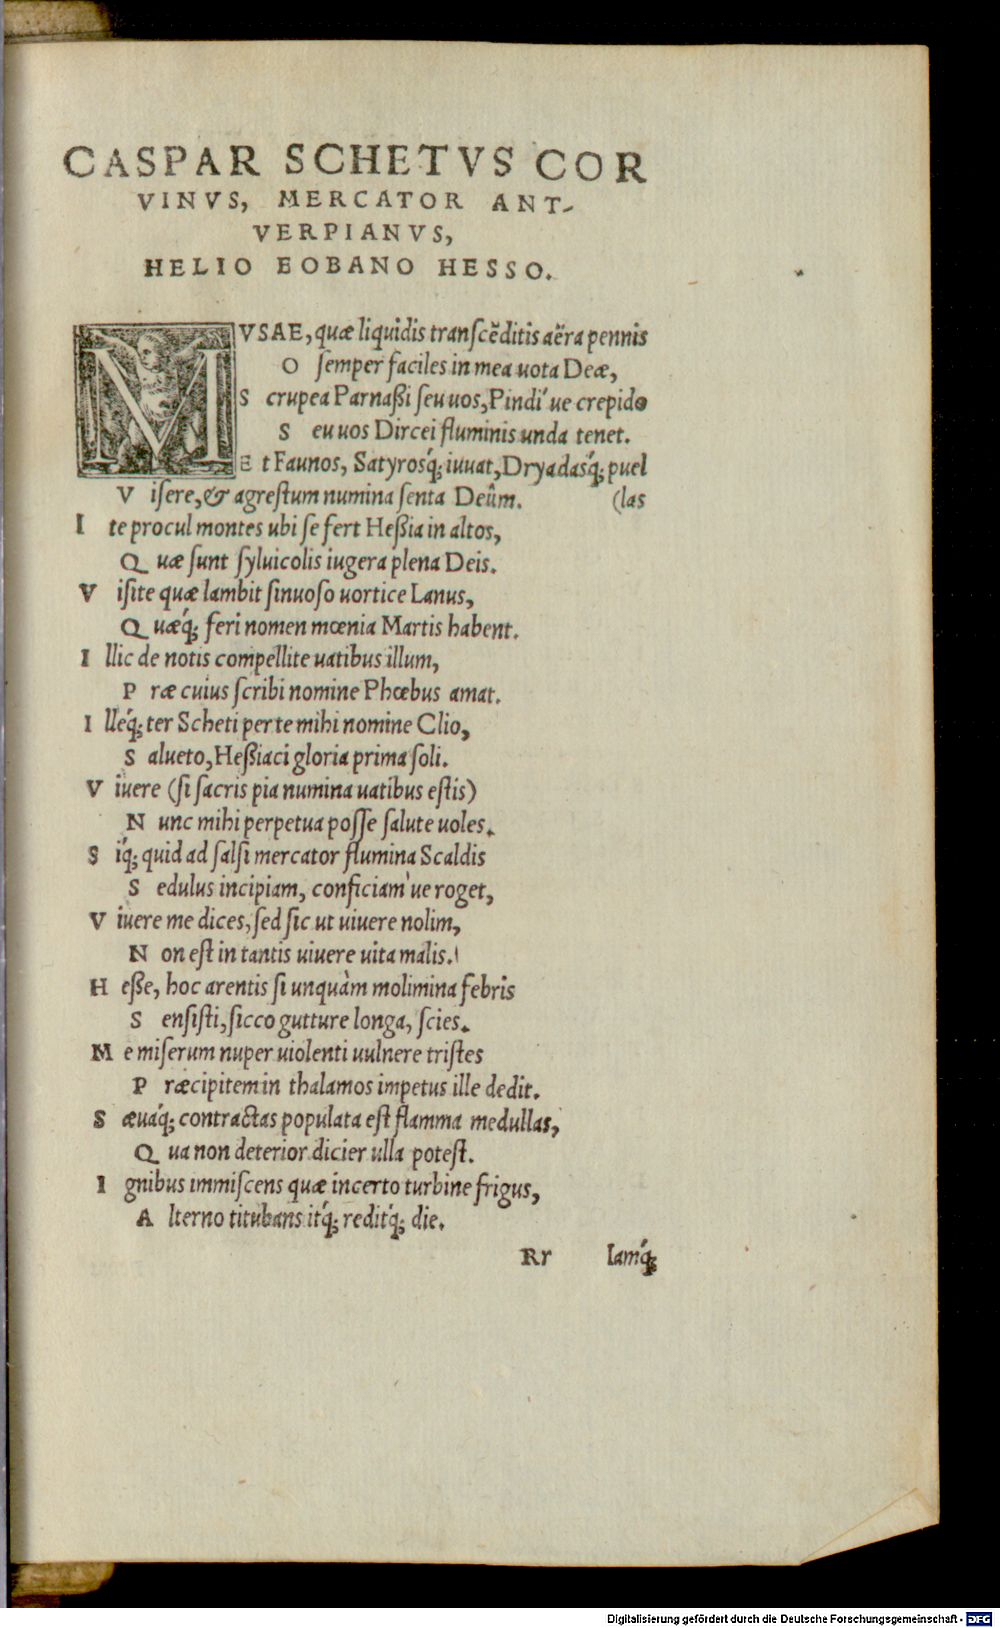 CASPAR SCHETVS COR
VINVS, MERCATOR ANT-
VERPIANVS,
HELIO EOBANO HESSO.
MVSAE, quæ liquidis tranſcẽditis aëra pennis
O ſemper faciles in mea uota Deæ,
Scrupea Parnaßi ſeu uos, Pindi´ue crepido
Seu uos Dircei fluminis unda tenet.
Et Faunos, Satyrosq́; iuuat, Dryadasq́; puel
Viſere, & agreſtum numina ſenta Deûm. (las
Ite procul montes ubi ſe fert Heßia in altos,
Quæ ſunt ſyluicolis iugera plena Deis.
Viſite quæ lambit ſinuoſo uortice Lanus,
Quæq́; feri nomen mœnia Martis habent.
Illic de notis compellite uatibus illum,
Præ cuius ſcribi nomine Phœbus amat.
Illeq́; ter Scheti per te mihi nomine Clio,
Salueto, Heßiaci gloria prima ſoli.
Viuere (ſi ſacris pia numina uatibus eſtis)
Nunc mihi perpetua poſſe ſalute uoles.
Siq́; quid ad ſalſi mercator flumina Scaldis
Sedulus incipiam, conficiam´ue roget,
Viuere me dices, ſed ſic ut uiuere nolim,
Non eſt in tantis uiuere uita malis.
Heße, hoc arentis ſi unquàm molimina febris
Senſiſti, ſicco gutture longa, ſcies.
Me miſerum nuper uiolenti uulnere triſtes
Præcipitem in thalamos impetus ille dedit.
Sæuáq; contractas populata eſt flamma medullas,
Qua non deterior dicier ulla poteſt.
Ignibus immiſcens quæ incerto turbine frigus,
Alterno titubans itq́; reditq́; die.
Rr Iamq́;
Digitalisierung gefördert durch die Deutsche Forschungsgemeinschaft - DFG